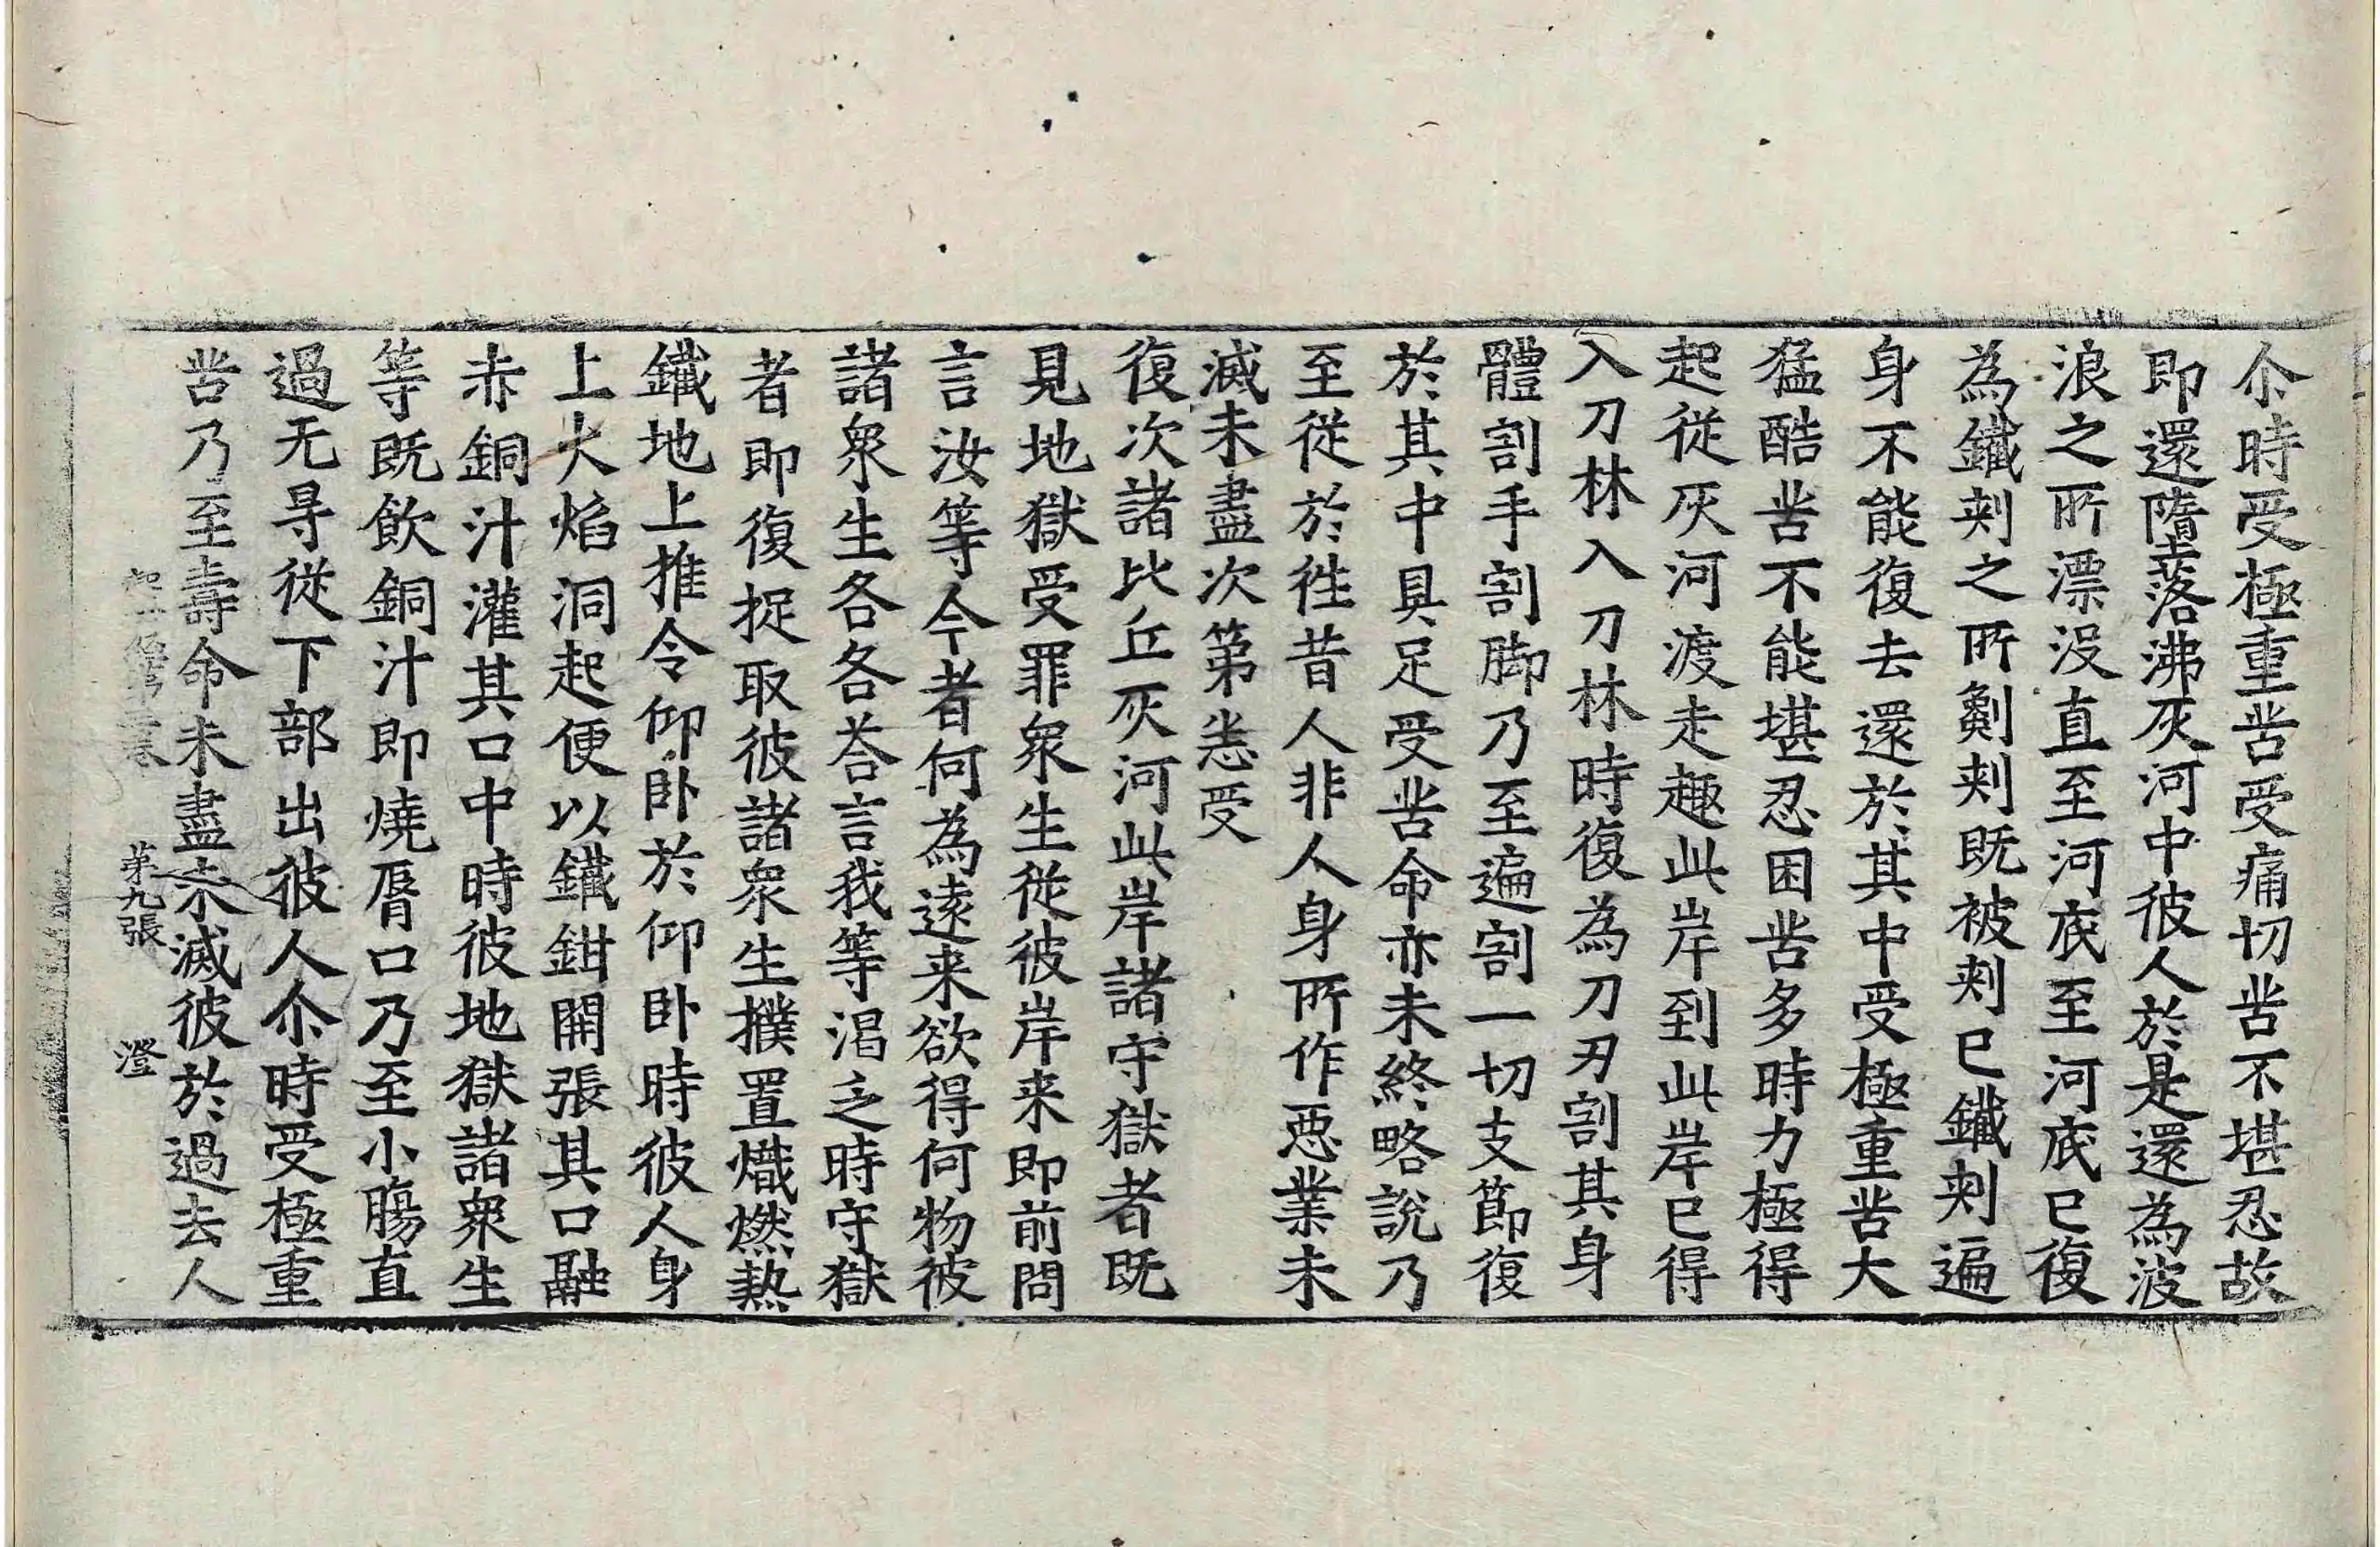 尒時受極重苦受痛切苦不堪忍故
即還墮落沸灰河中彼人於是還為波
浪之所漂没直至河底至河底已復
為鐵刾之所劖刾既被刾已鐵刾遍
身不能復去還於其中受極重苦大
猛酷苦不能堪忍困苦多時力極得
起從灰河渡走趣此岸到此岸已得
入刀林入刀林時復為刀刃割其身
體割手割脚乃至遍割一切支節復
於其中具足受苦命亦未終略說乃
至從於徃昔人非人身所作惡業未
滅未盡次第悉受
復次諸比丘灰河此岸諸守獄者既
見地獄受罪衆生從彼岸来即前問
言汝等今者何為遠来欲得何物彼
諸衆生各各荅言我等渴乏時守獄
者即復捉取彼諸衆生撲置熾燃熱
鐵地上推令仰卧於仰卧時彼人身
上火焰洞起便以鐵鉗開張其口融
赤銅汁灌其口中時彼地獄諸衆生
等既飲銅汁即燒脣口乃至小膓直
過无㝵從下部出彼人尒時受極重
苦乃至壽命未盡未滅彼於過去人
第九張 澄